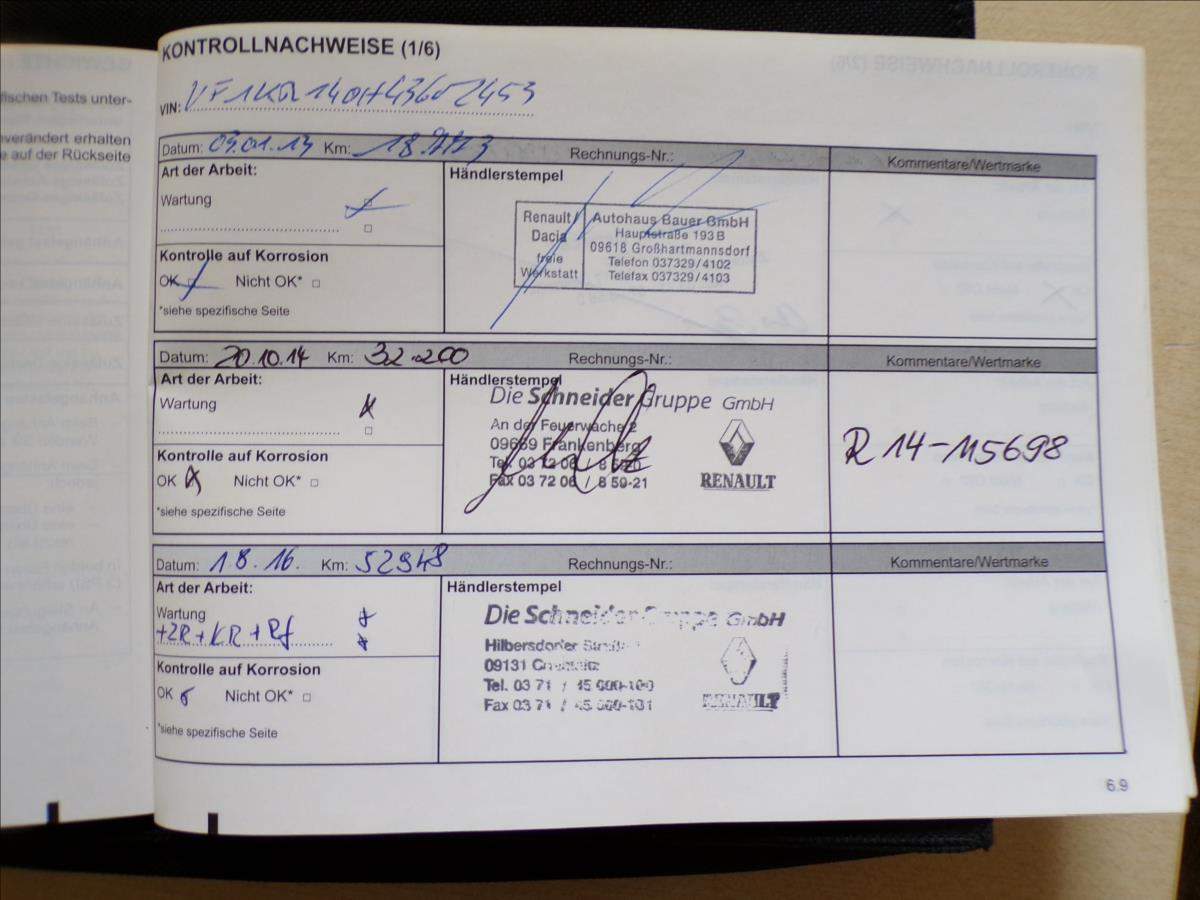 fischen Tests unter-
verändert erhalten
e auf der Rückseite
KONTROLLNACHWEISE (1/6)
VIN:
Datum: 03.01.13 Km: Rechnungs-Nr.: Kommentare/Wertmarke
Art der Arbeit:
Wartung
Kontrolle auf Korrosion
OK Nicht OK*
*siehe spezifische Seite
Händlerstempel
Renault/
Dacia
freie
Werkstatt
Autohaus Bauer GmbH
Hauptstraße 193 B
09618 Großhartmannsdorf
Telefon 037329/4102
Telefax 037329/4103
Datum: 20.10.14 Km: 32.200 Rechnungs-Nr.: Kommentare/Wertmarke
Art der Arbeit:
Wartung
Kontrolle auf Korrosion
OK Nicht OK*
*siehe spezifische Seite
Händlerstempel
Die Schneider Gruppe GmbH
An der Feuerwache 2
09669 Frankenberg
Tel. 03 72 06 / 8 59-20
Fax 03 72 06 / 8 59-21
RENAULT
R 14-115698
Datum: 1.8.16. Km: 52948 Rechnungs-Nr.: Kommentare/Wertmarke
Art der Arbeit:
Wartung
+ZR+KR+Rf
Kontrolle auf Korrosion
OK Nicht OK*
*siehe spezifische Seite
Händlerstempel
Die Schneider Gruppe GmbH
Hilbersdorfer Straße
09131 Chemnitz
Tel. 03 71 /
Fax 03 71 /
RENAULT
6.9